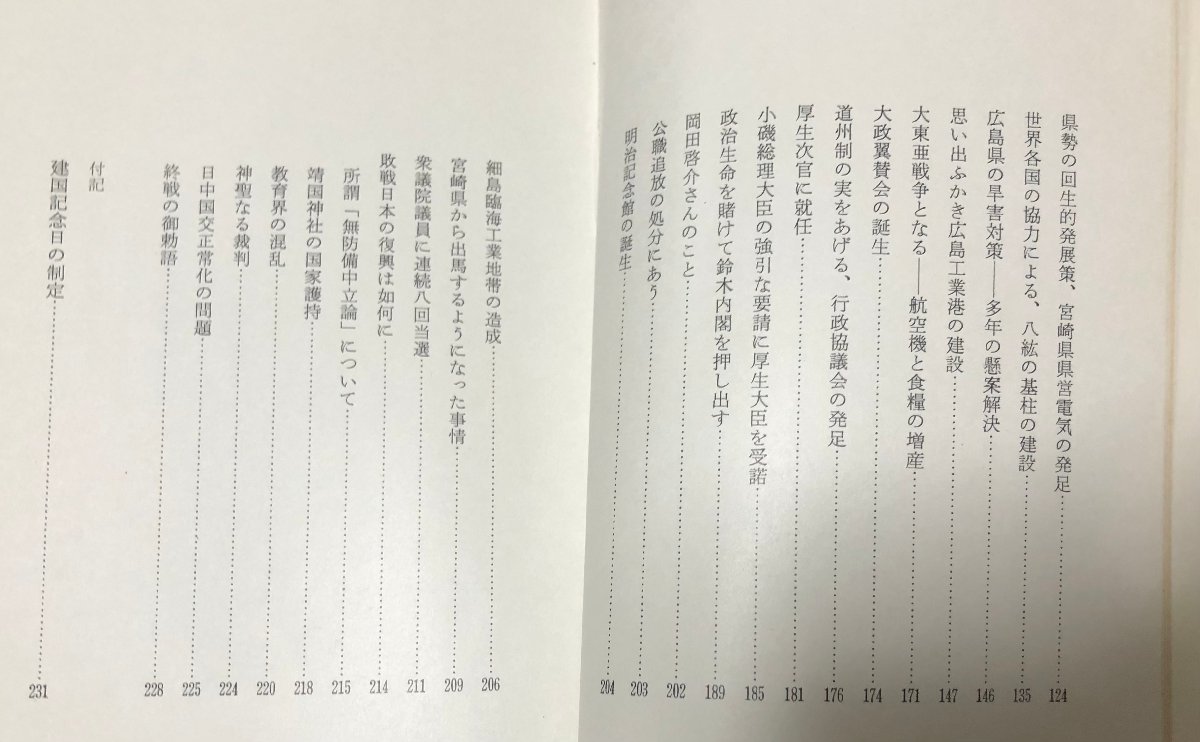 県勢の回生的発展策、宮崎県県営電気の発足…………124
世界各国の協力による、八紘の基柱の建設…………135
広島県の旱害対策――多年の懸案解決…………146
思い出ふかき広島工業港の建設…………147
大東亜戦争となる――航空機と食糧の増産…………171
大政翼賛会の誕生…………174
道州制の実をあげる、行政協議会の発足…………176
厚生次官に就任…………181
小磯総理大臣の強引な要請に厚生大臣を受諾…………185
政治生命を賭けて鈴木内閣を押し出す…………189
岡田啓介さんのこと…………202
公職追放の処分にあう…………203
明治記念館の誕生…………204
細島臨海工業地帯の造成…………206
宮崎県から出馬するようになった事情…………209
衆議院議員に連続八回当選…………211
敗戦日本の復興は如何に…………214
所謂「無防備中立論」について…………215
靖国神社の国家護持…………218
教育界の混乱…………220
神聖なる裁判…………224
日中国交正常化の問題…………225
終戦の御勅語…………228
付記
建国記念日の制定…………231